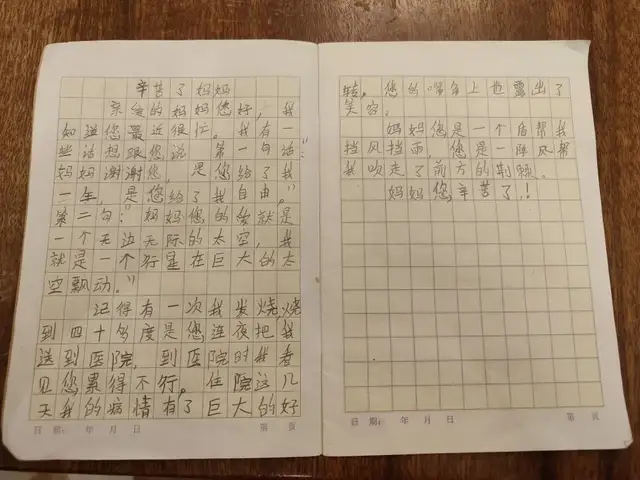 辛苦了妈妈
亲爱的妈妈您好,我
知道您最近很忙。我有一
些话想跟您说 第一句话:
妈妈谢谢您,是您给了我
一年,是您给了我自由。”
第二句:“妈妈您的爱就是
一个无边无际的太空,我
就是一个行星在巨大的太
空飘动。”
记得有一次我发烧,烧
到四十多度是您连夜把我
送到医院,到医院时我看
见您累得不行。住院这几
天我的病情有了巨大的好
日期: 年 月 日 第 页
转。您的嘴角上也露出了
笑容。
妈妈您是一个盾帮我
挡风挡雨,您是一阵风帮
我吹走了前方的荆棘。
妈妈您辛苦了!!
日期: 年 月 日 第 页